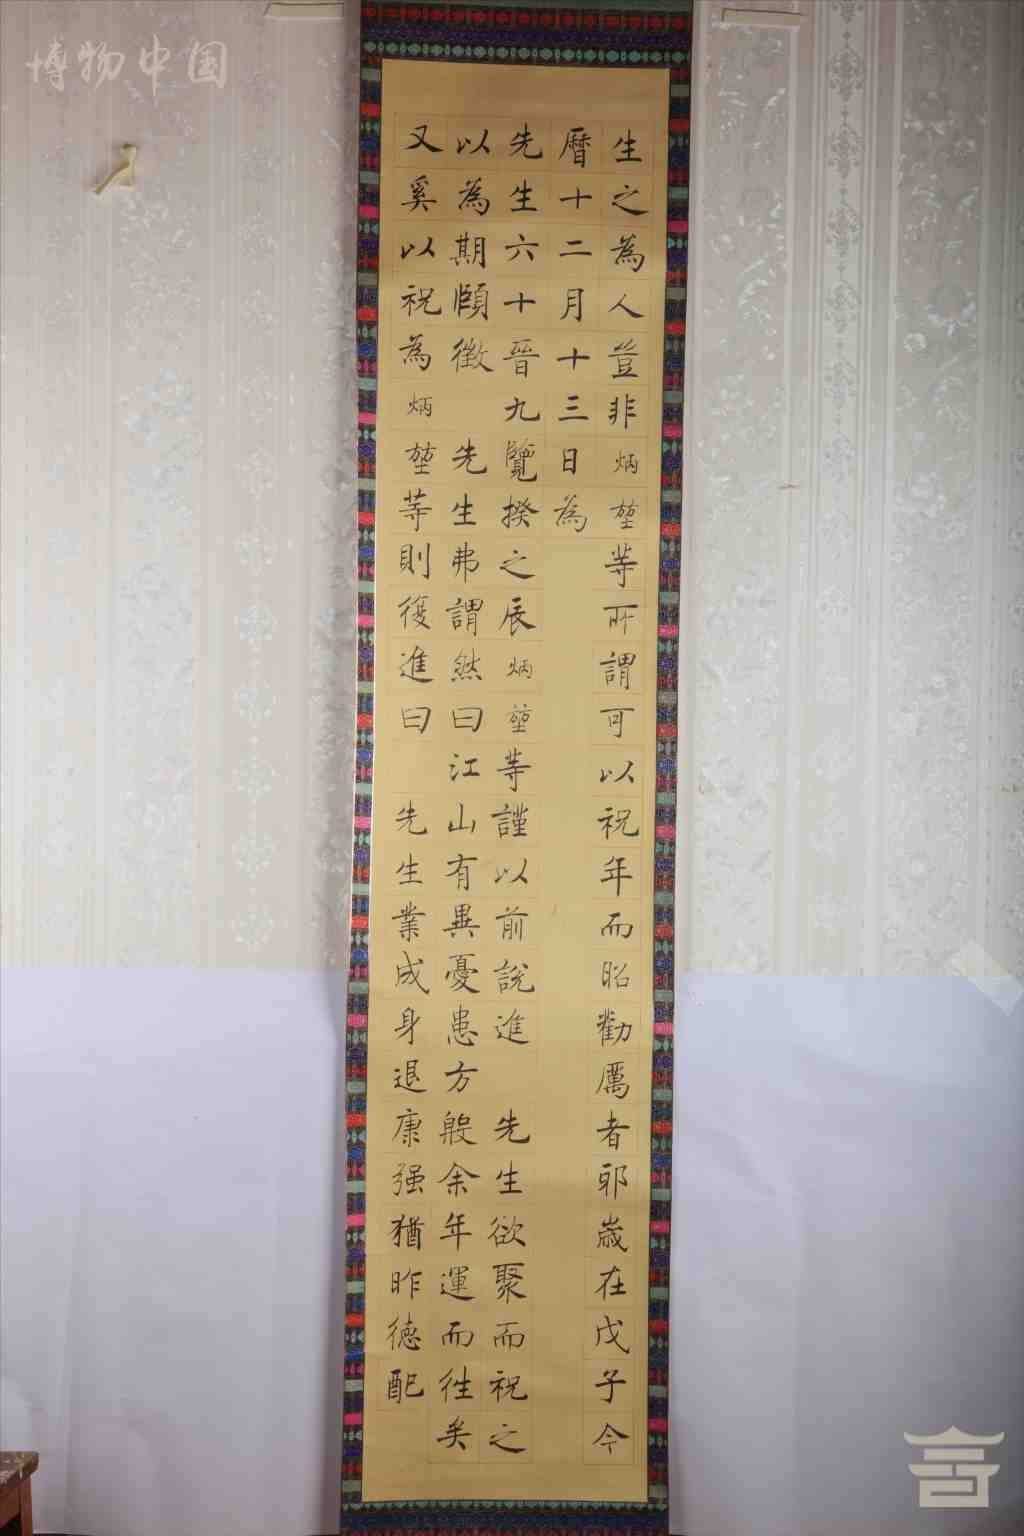 博物中国
生之為人豈非炳堃等所謂可以祝年而昭勸厲者耶歲在戊子今
曆十二月十三日為
先生六十晉九覽揆之辰炳堃等謹以前說進 先生欲聚而祝之
以為期頤徵 先生弗謂然曰江山有異憂患方殷余年運而往矣
又奚以祝為炳堃等則復進曰 先生業成身退康强猶昨德配